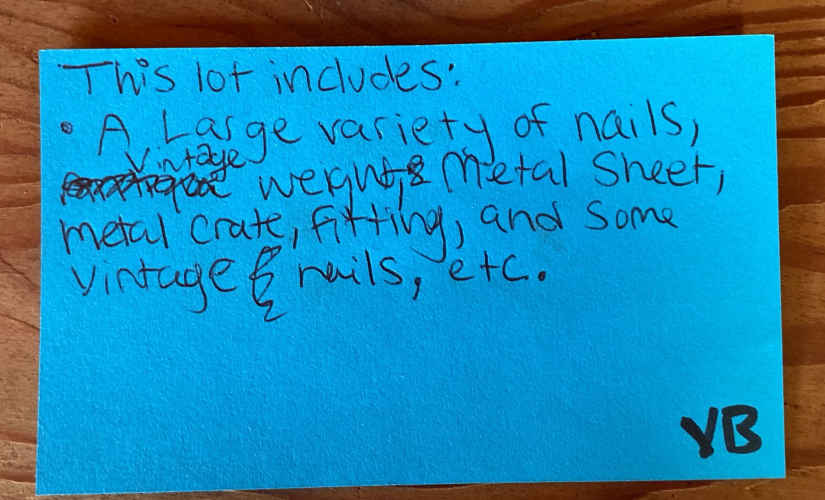 This lot includes:
• A Large variety of nails,
vintage
weight, & Metal Sheet,
metal crate, fitting, and some
vintage & nails, etc.
YB